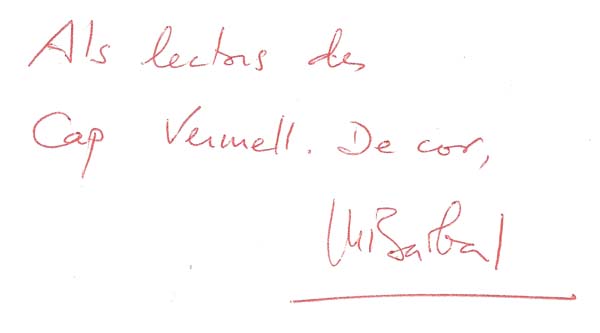 Als lectors des
Cap Vermell. De cor,
MBarbal